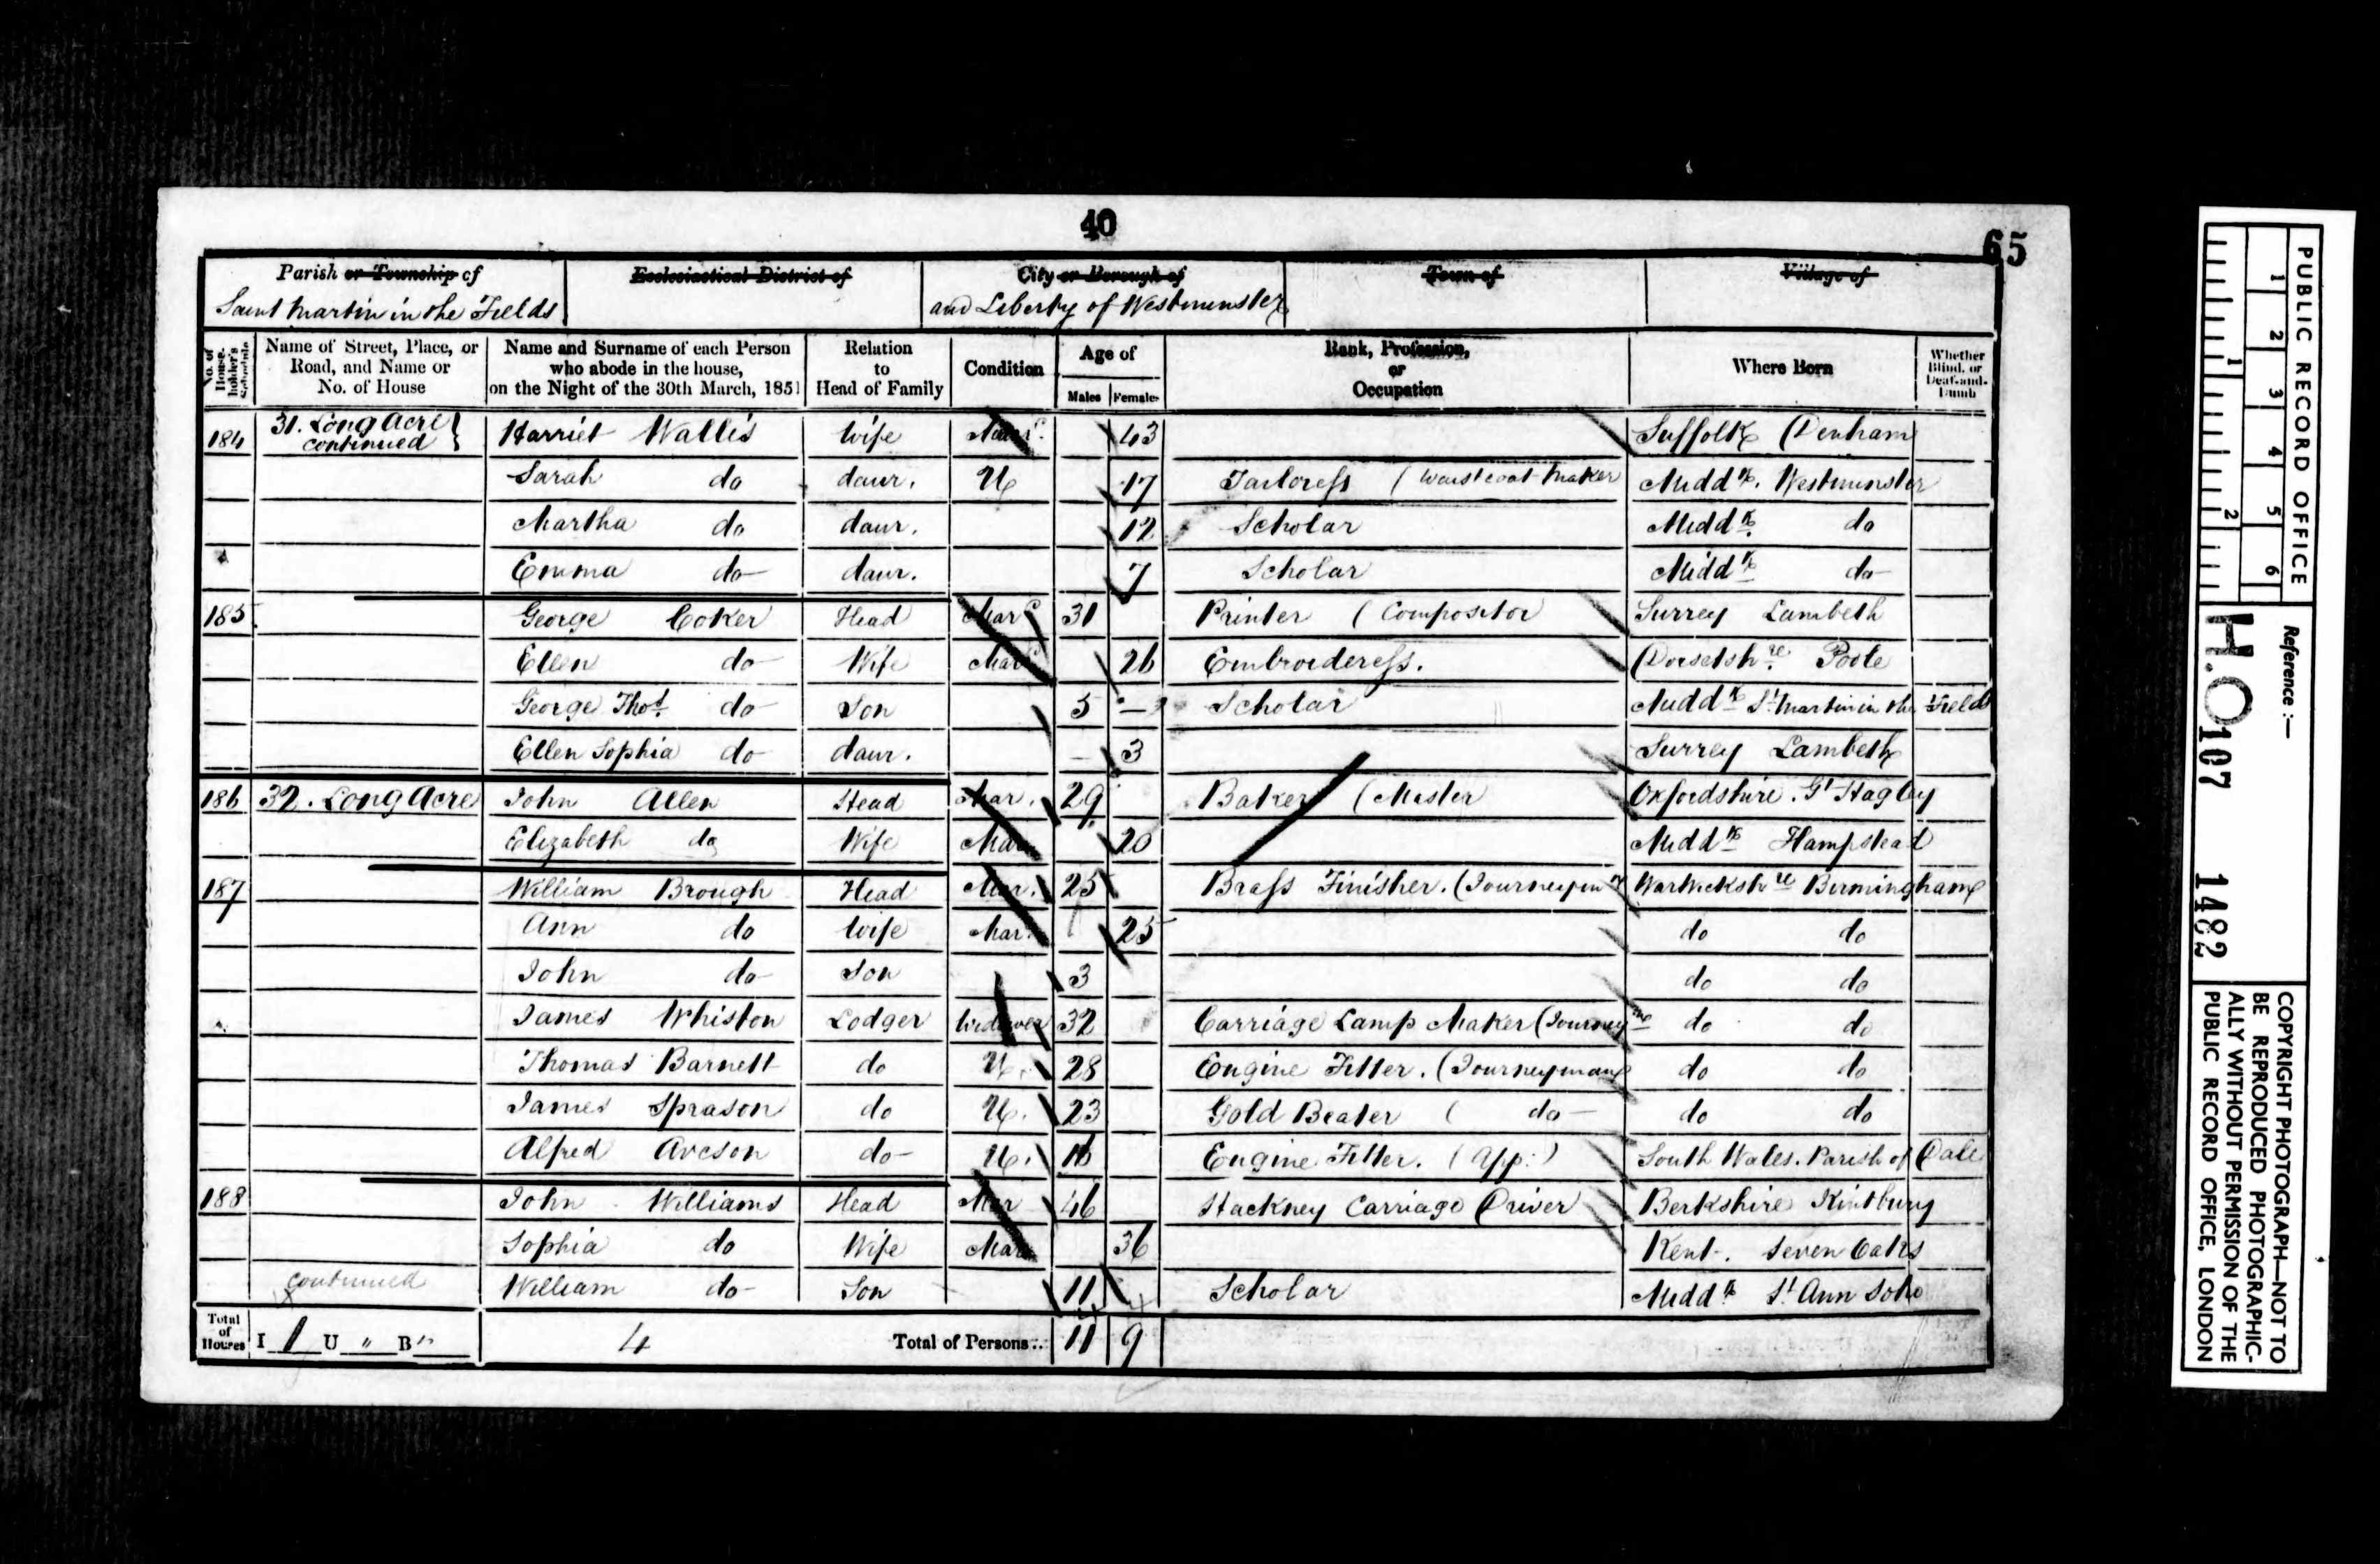 40
65
Parish or Township of
Saint Martin in the Fields
Ecclesiastical District of
City or Borough of
and Liberty of Westminster
Town of
Village of
No. of House-holder's Schedule
Name of Street, Place, or Road, and Name or No. of House
Name and Surname of each Person who abode in the house, on the Night of the 30th March, 1851
Relation to Head of Family
Condition
Age of
Males
Females
Rank, Profession, or Occupation
Where Born
Whether Blind, or Deaf-and-Dumb
184 31. Long Acre continued Harriet Wallis Wife Mard. 43 Suffolk Denham
Sarah do daur. U 17 Tailoress (Waistcoat Maker Middx. Westminster
Martha do daur. 12 Scholar Middx. do
Emma do daur. 7 Scholar Middx do
185. George Coker Head Mard 31 Printer (Compositor Surrey Lambeth
Ellen do Wife Mard 26 Embroideress. Dorsetshre. Poole
George Thos. do Son 5 – Scholar Middx St Martin in the Fields
Ellen Sophia do daur. – 3 Surrey Lambeth
186 32. Long Acre John Allen Head Mar. 29 Baker (Master Oxfordshire. Gt Hagley
Elizabeth do Wife Mar 20 Middx Hampstead
187 William Brough Head Mar. 25 Brass Finisher. (Journeymn Warwickshre Birmingham
Ann do Wife Mar. 25 do do
John do Son 3 do do
James Whiston Lodger Widower 32 Carriage Lamp Maker (Journeyme do do
Thomas Barnett do U. 28 Engine Fitter. (Journeyman do do
James Sprason do U. 23 Gold Beater ( do – do do
Alfred do U. 16 Engine Fitter. (App:) South Wales. Parish of Dale
188 John Williams Head Mar 46 Hackney Carriage Driver Berkshire Kintbury
Sophia do Wife Mar 36 Kent. Seven Oaks
continued William do Son 11 Scholar Middx St Ann Soho
Total of Houses I 1 U " B " 4 Total of Persons.. 11 9
PUBLIC RECORD OFFICE
1 2 3 4 5 6
1 2
Reference:—
H.O. 107 1482
COPYRIGHT PHOTOGRAPH—NOT TO
BE REPRODUCED PHOTOGRAPHIC-
ALLY WITHOUT PERMISSION OF THE
PUBLIC RECORD OFFICE, LONDON